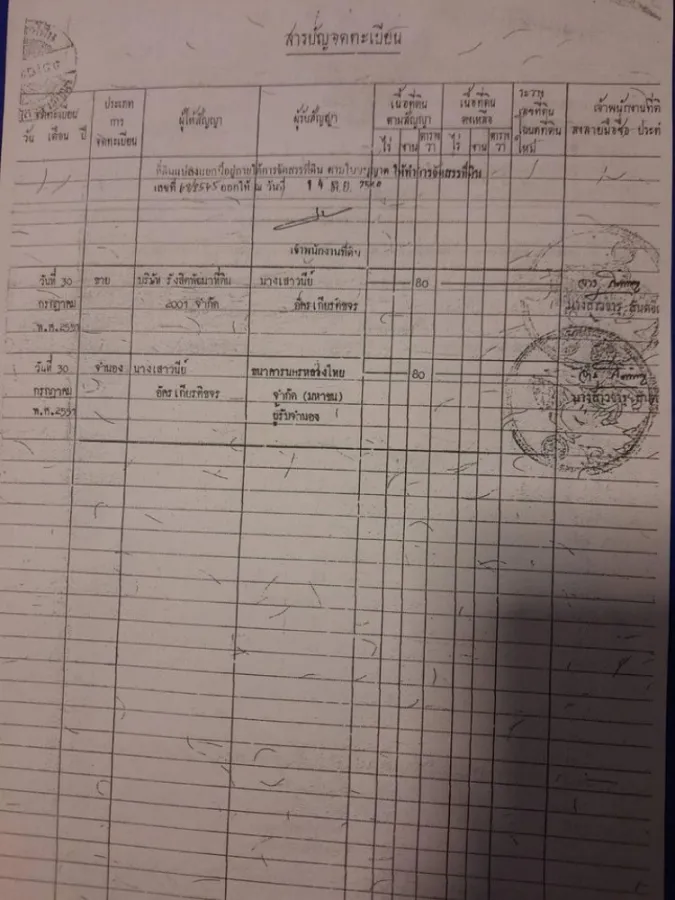 สารบัญจดทะเบียน
จดทะเบียน
วัน เดือน ปี
ประเภท
การ
จดทะเบียน
ผู้ให้สัญญา
ผู้รับสัญญา
เนื้อที่ดิน
ตามสัญญา
ไร่ งาน ตารางวา
เนื้อที่ดิน
คงเหลือ
ไร่ งาน ตารางวา
ระวาง
เลขที่ดิน
โฉนดที่ดิน
ใหม่
เจ้าพนักงานที่ดิ
ลงลายมือชื่อ ประทั
ที่ดินแปลงแยกนี้อยู่ภายใต้การจัดสรรที่ดิน ตามใบอนุญาต ให้ทำการจัดสรรที่ดิน
ออกให้ ณ วันที่ 14
เจ้าพนักงานที่ดิน
วันที่ 30 ขาย บริษัท รังสิตพัฒนาที่ดิน นางเสาวนีย์ 80
กรกฎาคม 2001 จำกัด อัครเกียรติขจร
พ.ศ.2551
วันที่ 30 จำนอง นางเสาวนีย์ ธนาคารนครหลวงไทย 80
กรกฎาคม อัครเกียรติขจร จำกัด (มหาชน)
พ.ศ.2551 ผู้รับจำนอง